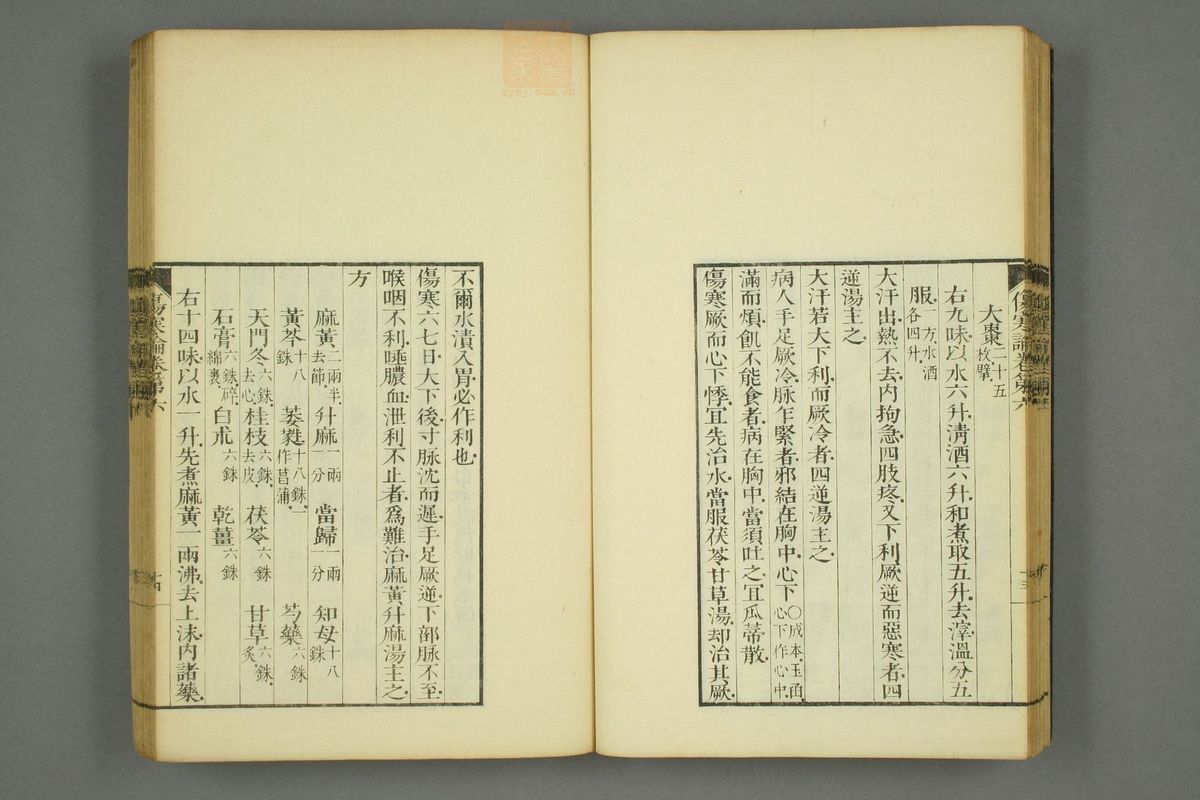 大棗二十五枚擘
右九味以水六升清酒六升和煮取五升去滓溫分五
服一方水酒各四升
大汗出熱不去內拘急四肢疼又下利厥逆而惡寒者四
逆湯主之
大汗若大下利而厥冷者四逆湯主之
病人手足厥冷脉乍緊者邪結在胸中心下○成本玉函心下作心中
滿而煩飢不能食者病在胸中當須吐之宜瓜蒂散
傷寒厥而心下悸宜先治水當服茯苓甘草湯却治其厥
傷寒論卷第六
十三
不爾水漬入胃必作利也
傷寒六七日大下後寸脉沈而遲手足厥逆下部脉不至
喉咽不利唾膿血泄利不止者爲難治麻黃升麻湯主之
方
麻黃二兩半去節 升麻一兩一分 當歸一兩一分 知母十八銖
黃芩十八銖 萎蕤十八銖一作菖蒲 芍藥六銖
天門冬六銖去心 桂枝六銖去皮 茯苓六銖 甘草六銖炙
石膏六銖碎綿裹 白朮六銖 乾薑六銖
右十四味以水一升先煮麻黃一兩沸去上沫內諸藥
傷寒論卷第六
十四
zysj.com.cn